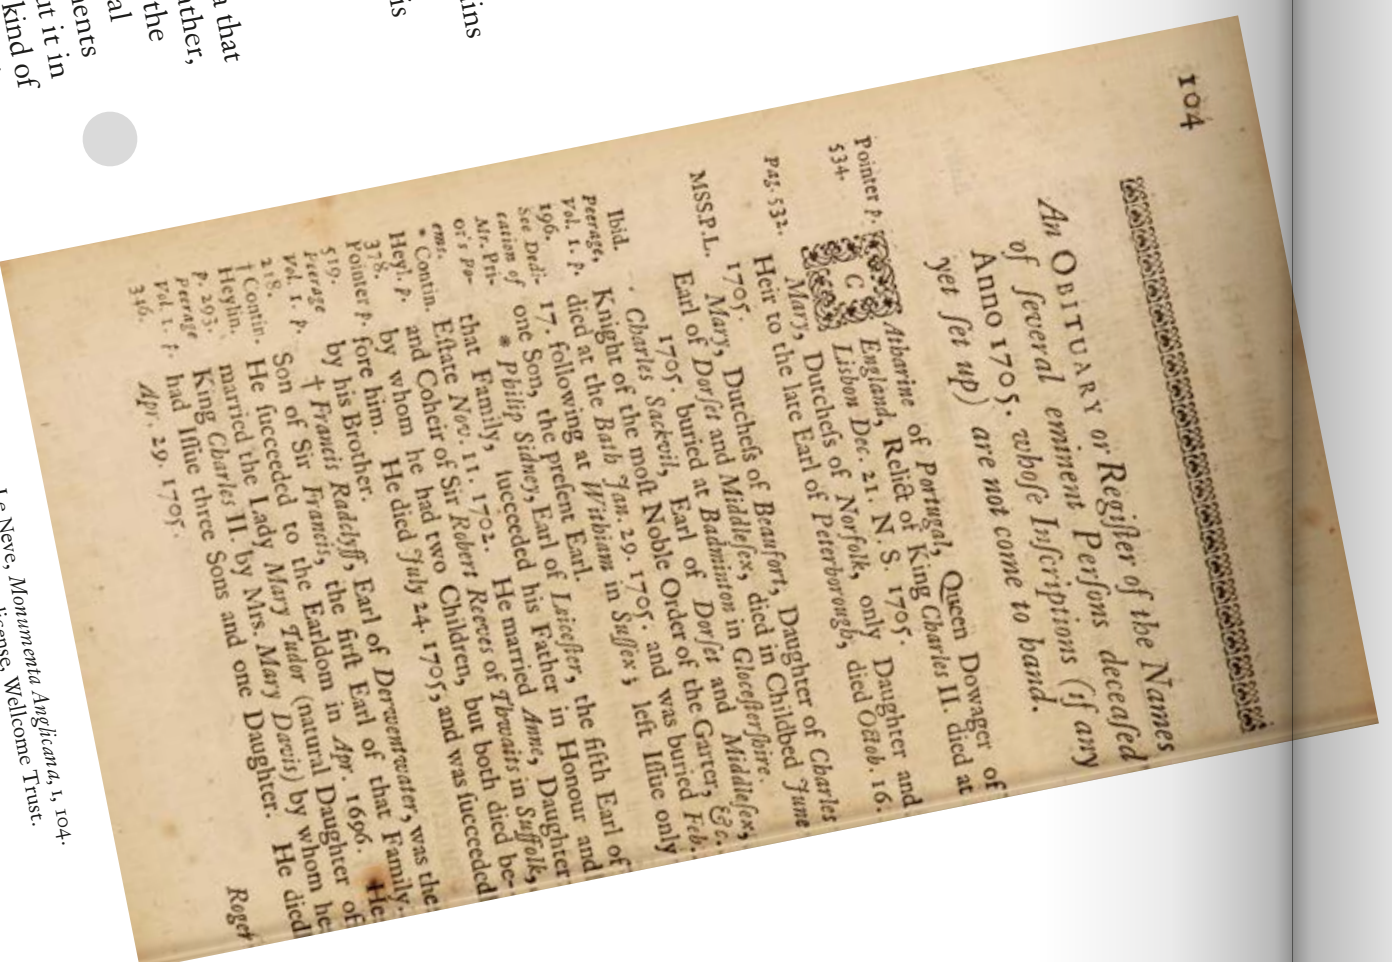 that
the
it in
kind of
104
An OBITUARY or Regiſter of the Names
of ſeveral eminent Perſons deceaſed
Anno 1705. whoſe Inſcriptions (if any
yet ſet up) are not come to hand.
Pointer p. 534.
CAtharine of Portugal, Queen Dowager of
England, Relict of King Charles II. died at
Lisbon Dec. 21. N. S. 1705.
Pag. 532.
Mary, Dutcheſs of Norfolk, only Daughter and
Heir to the late Earl of Peterborough, died Octob. 16.
1705.
MSS.P.L.
Mary, Dutcheſs of Beaufort, Daughter of Charles
Earl of Dorſet and Middleſex, died in Childbed June
1705. buried at Badminton in Gloceſterſhire.
Ibid.
Charles Sackvil, Earl of Dorſet and Middleſex,
Knight of the moſt Noble Order of the Garter, &c.
died at the Bath Jan. 29. 1705. and was buried Feb.
17. following at Withiam in Suſſex; left Iſſue only
one Son, the preſent Earl.
Peerage,
Vol. 1. p.
196.
See Dedi-
cation of
Mr. Pri-
or's Po-
ems.
* Philip Sidney, Earl of Leiceſter, the fifth Earl of
that Family, ſucceeded his Father in Honour and
Eſtate Nov. 11. 1702. He married Anne, Daughter
and Coheir of Sir Robert Reeves of Thwaits in Suffolk,
by whom he had two Children, but both died be-
fore him. He died July 24. 1705, and was ſucceeded
by his Brother.
* Contin.
Heyl. p.
378.
Pointer p.
519.
Peerage
Vol. 1. p.
218.
† Francis Radclyff, Earl of Derwentwater, was the
Son of Sir Francis, the firſt Earl of that Family.
He ſucceeded to the Earldom in Apr. 1696. He
married the Lady Mary Tudor (natural Daughter of
King Charles II. by Mrs. Mary Davis) by whom he
had Iſſue three Sons and one Daughter. He died
Apr. 29. 1705.
† Contin.
Heylin.
p. 293.
Peerage
Vol. 1. p.
346.
Roger
Le Neve, Monumenta Anglicana, 1, 104.
license, Wellcome Trust.